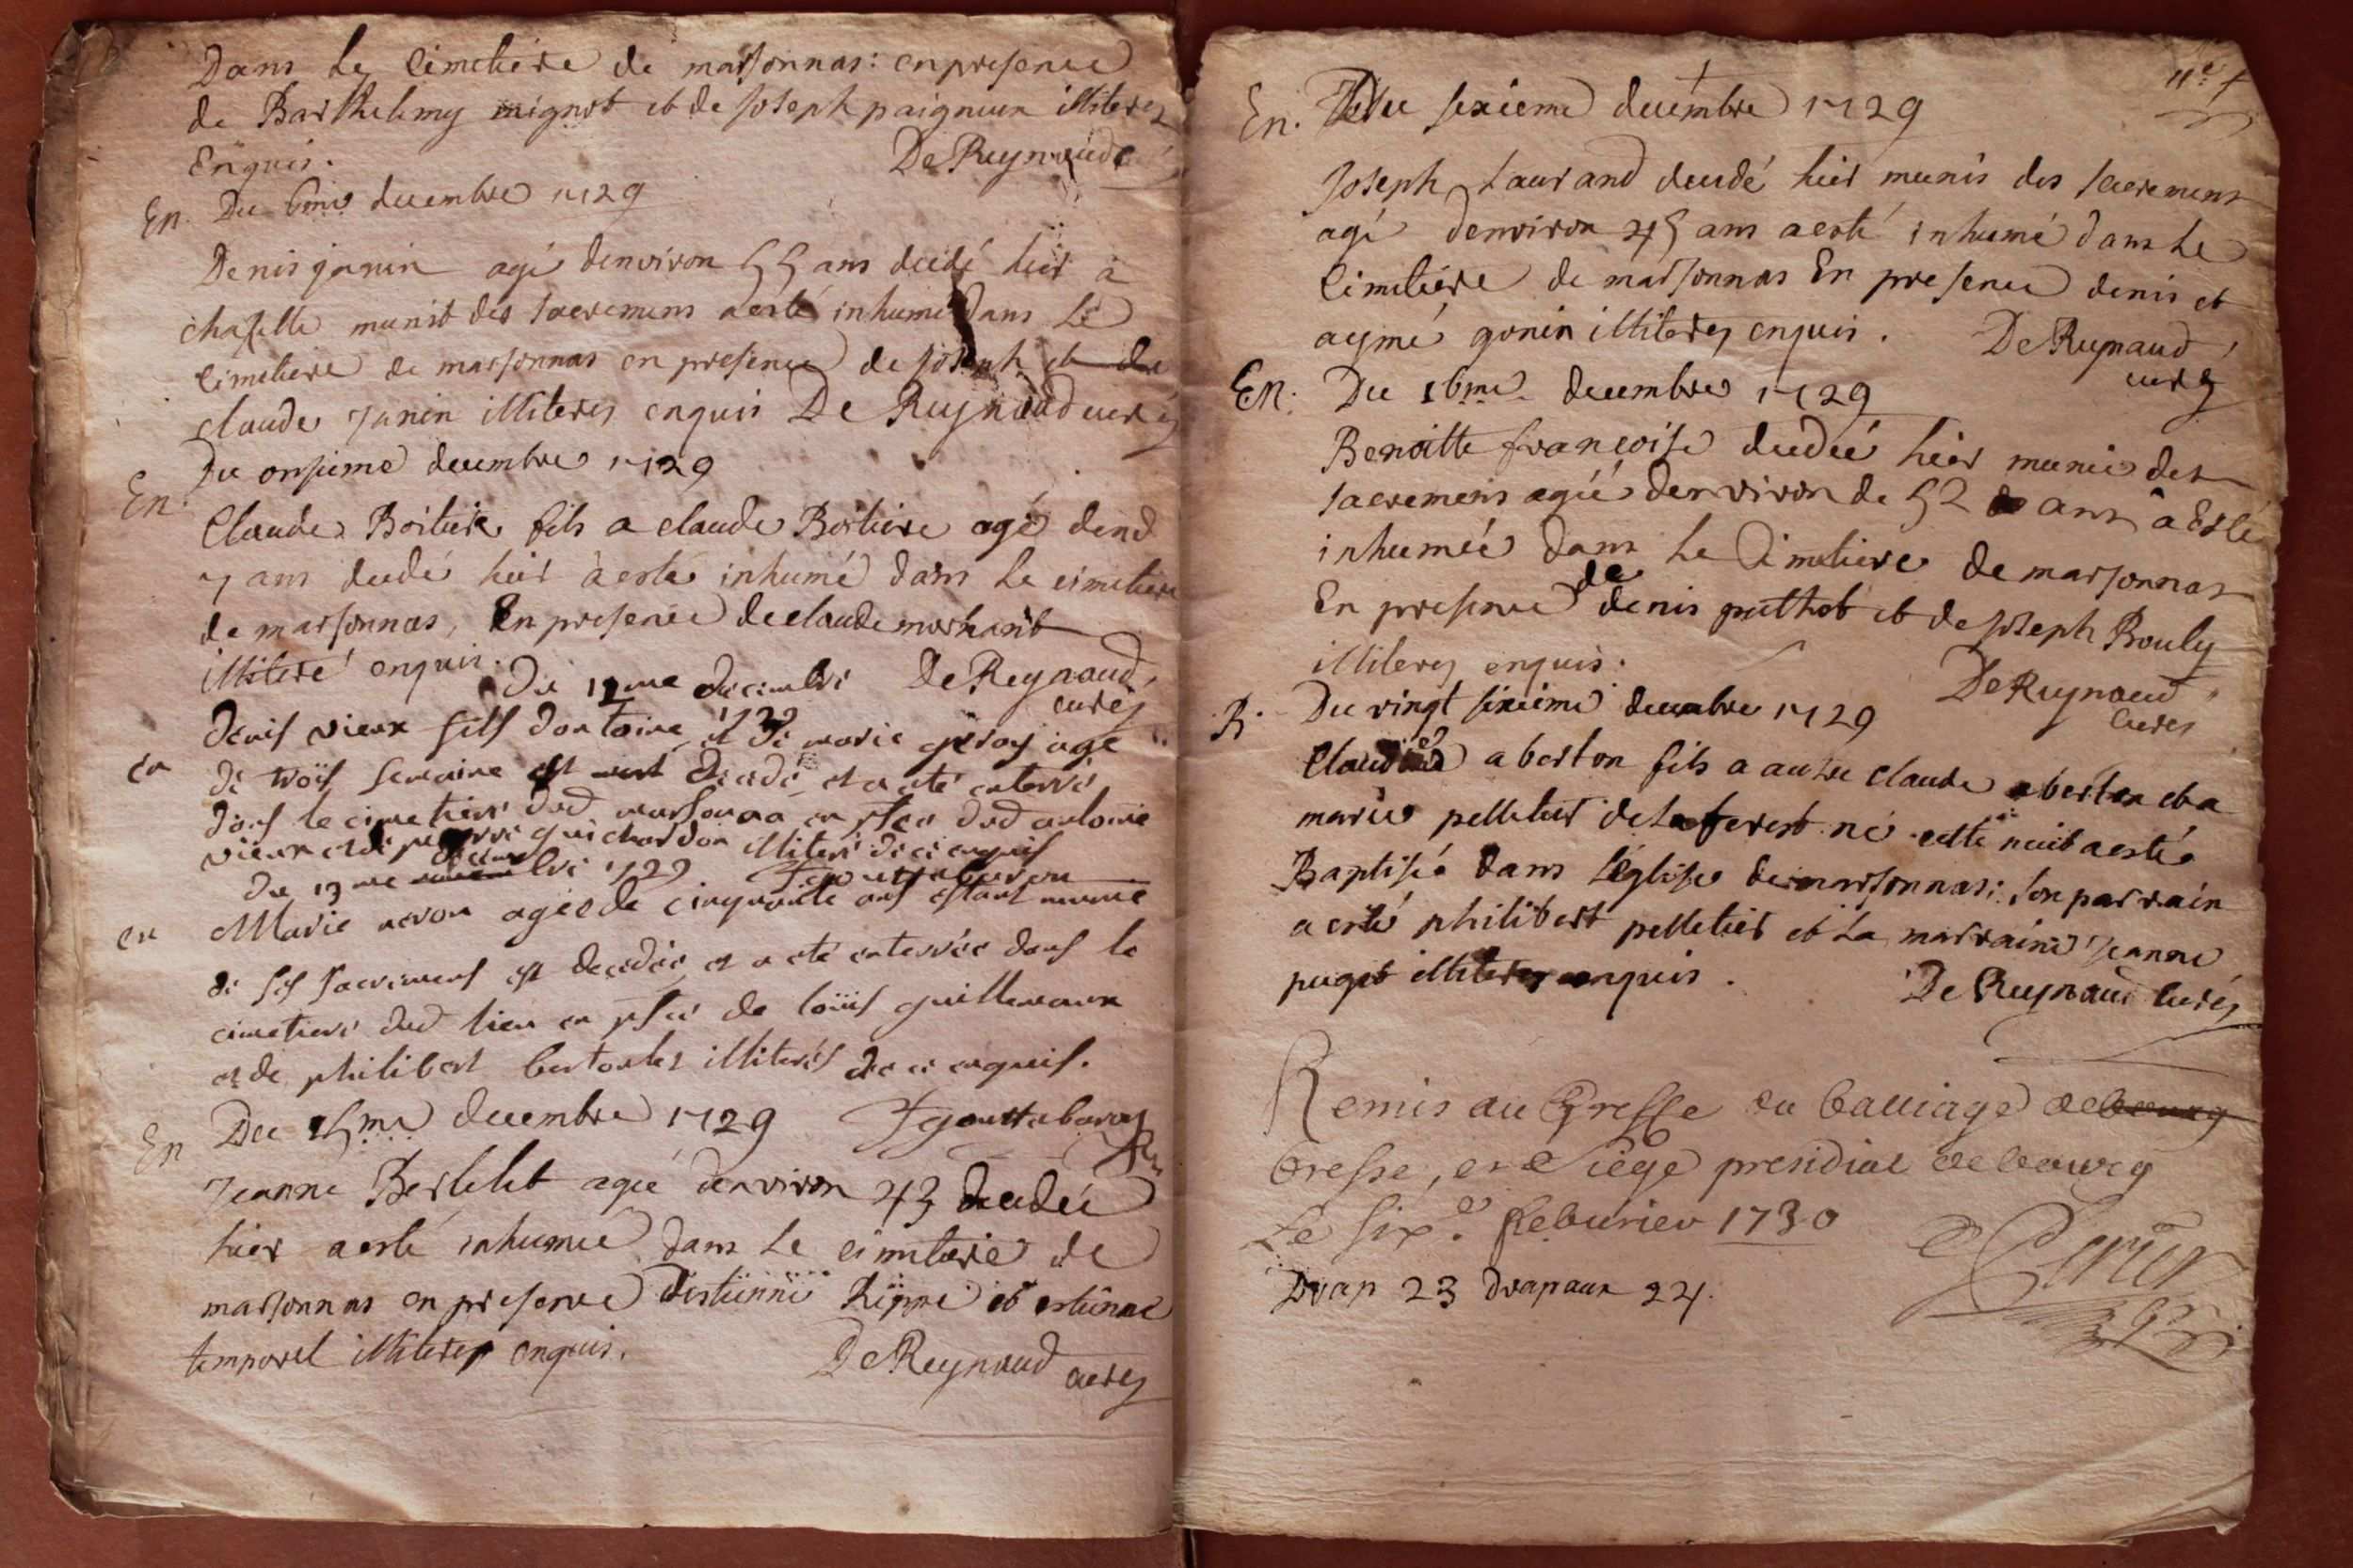 Dans Le Cimetiére de marsonnas: en presence
de Barthelemy mignot et de Joseph paigneux illiteres
Enquis. De Reynaud curé
En. Du 6me decembre 1729
Denis janin agé denviron 55 ans decedé hier à
chaselle munit des sacremens a esté inhumé Dans Le
Cimetiere de marsonnas en presence de joseph et de
claude janin illiteres enquis De Reynaud curé
En. Du onsieme decembre 1729
Claude Boitiere fils a claude Boitiere agé dend
7 ans decedé hier à esté inhumé dans Le cimetiere
de marsonnas, En presence de claude morhanit
illiteré enquis. De Reynaud, curé
Du 12me decembre 1729
en denis vieux fils dantoine et de marie geroy agé
de trois semaine est decedé et a eté enterré
dans le cimetiere dud marsonna en pnce dud antoine
vieux et de pierre guichardon illiteré de ce enquis
du 13me decembre 1729
en Marie neron agée de cinquante ans estant munie
de ses sacremens est decedée et a eté enterrée dans le
cimetiere dud lieu en pnce de loüis guillemaux
et de philibert bertoulet illiterés de ce enquis.
En Du 15me decembre 1729 Fgouttebaron
Jeanne Bertelet agée denviron 43 decedée
hier a esté inhumée dans Le cimetiere de
marsonnas en presence destienne Rippe et estienne
temporel illiteres enquis. De Reynaud curé
11e
En. Du sexieme decembre 1729
Joseph Laurand decedé hier munis des sacremens
agé denviron 45 ans a esté inhumé dans Le
Cimetiére de marsonnas En presence denis et
aymé gonin illiteres enquis. De Reynaud,
curé
En. Du 16me decembre 1729
Benoitte françoise decedée hier munie des
sacremens agée denviron de 52 ans a Esté
inhumée dans Le Cimetiere de marsonnas
En presence de denis puthet et de Joseph Bouly
illiteres enquis. De Reynaud
Curé
B. Du vingt sixieme decembre 1729
Claude aberton fils a autre claude aberton et a
marie pelletier de La ferest né cette nuit a esté
Baptisé dans L'église de marsonnas: son parrain
a esté philibert pelletier et La marraine jeanne
puget illiteres enquis. De Reynaud Curé
Remis au Greffe du bailliage de bourg
bresse, et Siege presidial de bourg
Le six.e feburier 1730
Drap 23 drapaux 24. Perier